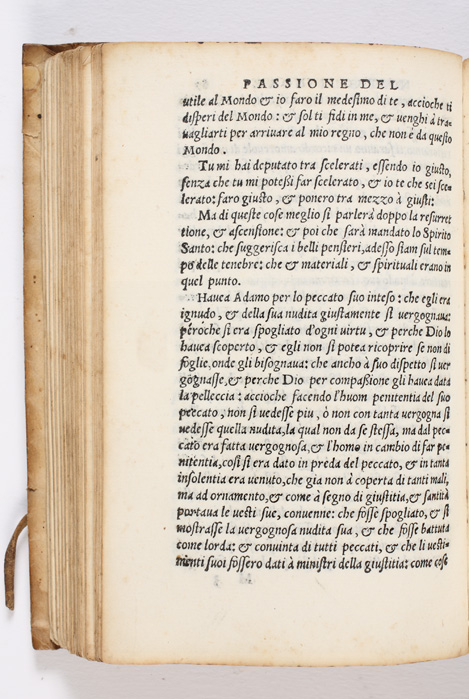 PASSIONE DEL
utile al Mondo & io faro il medesimo di te, accioche ti
disperi del Mondo: & sol ti fidi in me, & venghi à tra-
uagliarti per arriuare al mio regno, che non è da questo
Mondo.
Tu mi hai deputato tra scelerati, essendo io giusto,
senza che tu mi potessi far scelerato, & io te che sei sce
lerato: faro giusto, & ponero tra mezzo à giusti:
Ma di queste cose meglio si parlerà doppo la resurret
tione, & ascensione: & poi che sarà mandato lo Spirito
Santo: che suggerisca i belli pensieri, adesso siam sul tem-
po delle tenebre: che & materiali, & spirituali erano in
quel punto.
Haueua Adamo per lo peccato suo inteso: che egli era
ignudo, & della sua nudita giustamente si vergognaua:
peroche si era spogliato d'ogni virtu, & perche Dio lo
hauea scoperto, & egli non si potea ricoprire se non di
foglie, onde gli bisognaua: che ancho à suo dispetto si ver
gognasse, & perche Dio per compassione gli hauea data
la pelleccia: accioche facendo l'huom penitentia del suo
peccato, non si uedesse piu, ò non con tanta vergogna si
uedesse quella nudita, la qual non da se stessa, ma dal pec-
cato era fatta vergognosa, & l'homo in cambio di far pe-
nitentia, così si era dato in preda del peccato, & in tanta
insolentia era uenuto, che gia non à coperta di tanti mali,
ma ad ornamento, & come à segno di giustitia, & santità
portaua le vesti sue, conuenne: che fosse spogliato, & si
mostrasse la vergognosa nudita sua, & che fosse battuta
come lorda: & conuinta di tutti peccati, & che li uesti-
menti suoi fossero dati à ministri della giustitia: come cose